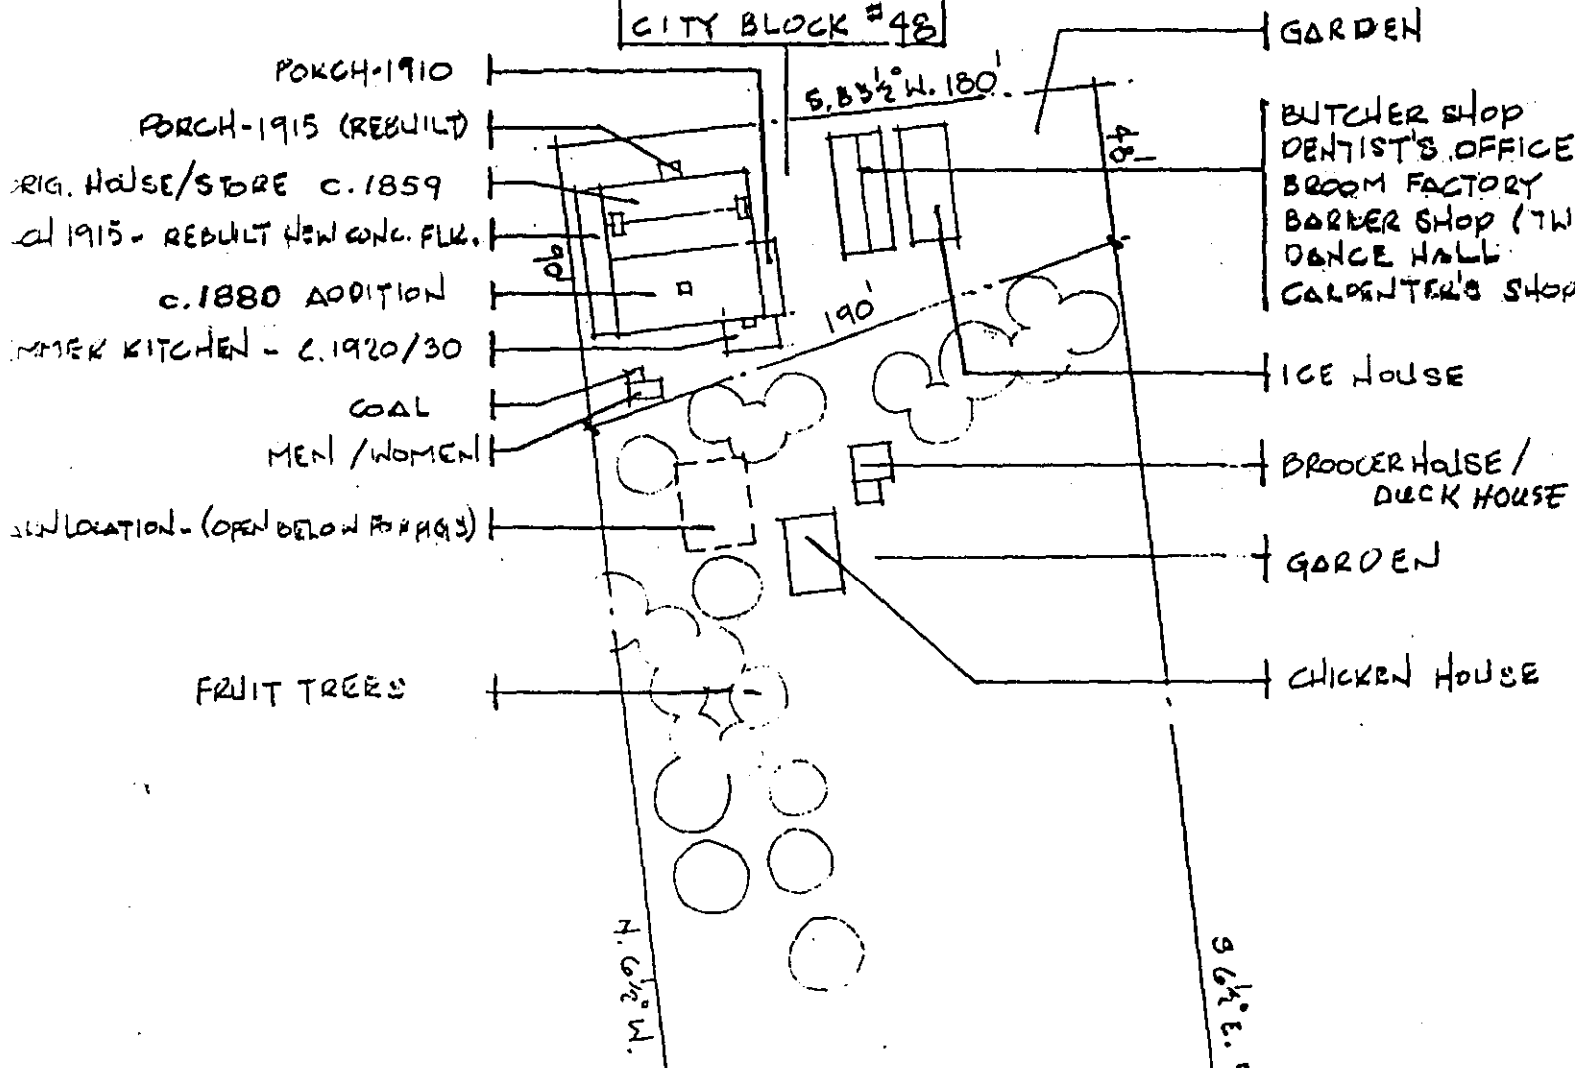 CITY BLOCK #48
PORCH-1910
PORCH-1915 (REBUILT)
RIG. HOUSE/STORE c.1859
CH 1915 - REBUILT NEW CONC. FLR.
c.1880 ADDITION
MMER KITCHEN - C.1920/30
COAL
MEN / WOMEN
LOCATION - (OPEN BELOW FOR PIGS)
FRUIT TREES
S.83½° W. 180'
90'
190'
48'
N. 6½° W.
S 6½° E.
GARDEN
BUTCHER SHOP
DENTIST'S OFFICE
BROOM FACTORY
BARBER SHOP (TW
DANCE HALL
CARPENTER'S SHOP
ICE HOUSE
BROODER HOUSE /
DUCK HOUSE
GARDEN
CHICKEN HOUSE